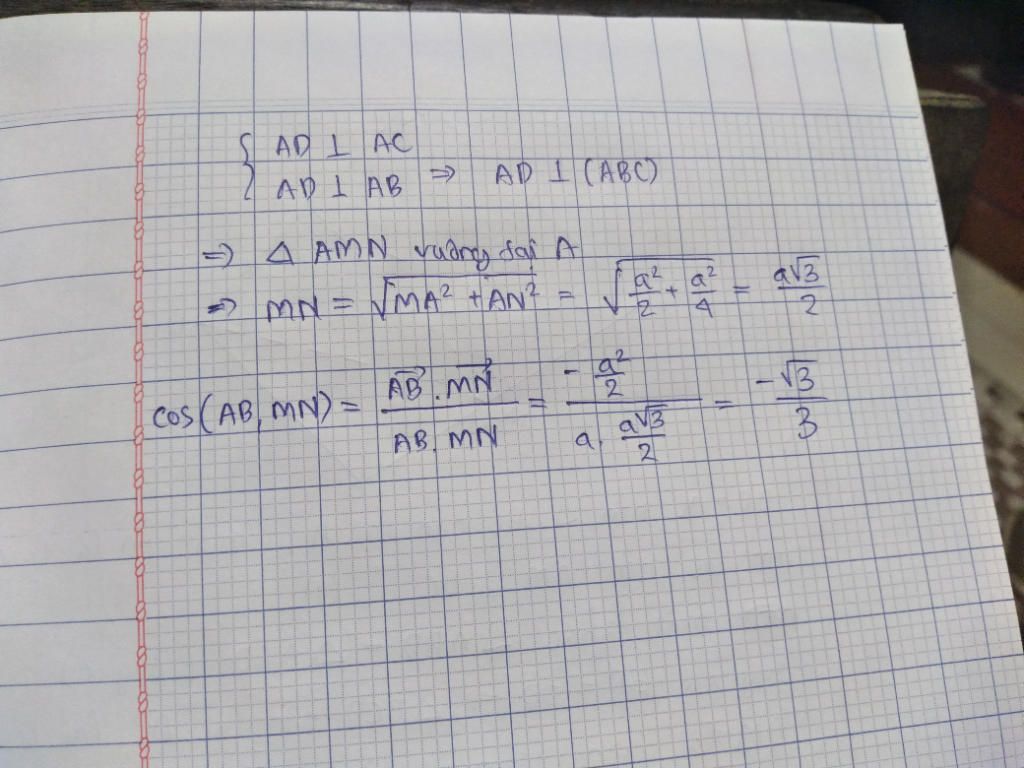 { AD ⊥ AC
{ AD ⊥ AB ⇒ AD ⊥ (ABC)
⇒ Δ AMN vuông tại A
⇒ MN = √(MA² + AN²) = √(a²/2 + a²/4) = a√3/2
cos(AB, MN) = (AB⃗ . MN⃗)/(AB. MN) = (-a²/2)/(a. a√3/2) = -√3/3